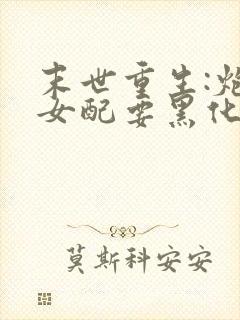 末世重生:炮
女配要黑化
莫斯科安安